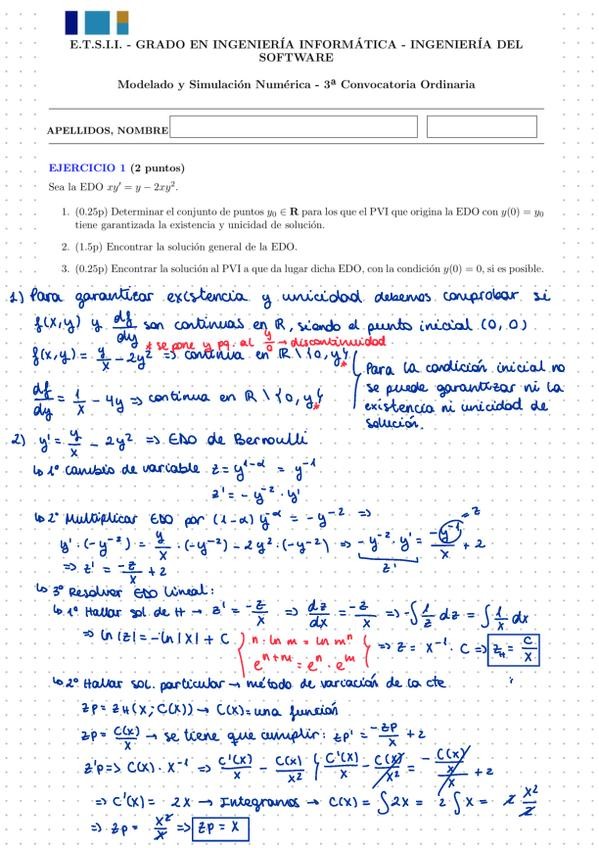 E.T.S.I.I. - GRADO EN INGENIERÍA INFORMÁTICA - INGENIERÍA DEL
SOFTWARE
Modelado y Simulación Numérica - 3ª Convocatoria Ordinaria
APELLIDOS, NOMBRE
EJERCICIO 1 (2 puntos)
Sea la EDO xy′ = y − 2xy².
1. (0.25p) Determinar el conjunto de puntos y₀ ∈ R para los que el PVI que origina la EDO con y(0) = y₀
tiene garantizada la existencia y unicidad de solución.
2. (1.5p) Encontrar la solución general de la EDO.
3. (0.25p) Encontrar la solución al PVI a que da lugar dicha EDO, con la condición y(0) = 0, si es posible.
1) Para garantizar existencia y unicidad debemos comprobar si
f(x,y) y df/dy son continuas en R, siendo el punto inicial (0,0)
* se pone y pq. al y/0 → discontinuidad
f(x,y) = y/x − 2y² => continua en R \ {0,y}*
df/dy = 1/x − 4y => continua en R \ {0,y}*
Para la condición inicial no
se puede garantizar ni la
existencia ni unicidad de
solución.
2) y' = y/x − 2y² => EDO de Bernoulli
↳ 1º cambio de variable z = y^(1−α) = y⁻¹
z' = − y⁻² · y'
↳ 2º Multiplicar EDO por (1−α) y^(−α) = − y⁻² =>
y' · (−y⁻²) = y/x · (−y⁻²) − 2y² · (−y⁻²) => −y⁻² · y' = −y⁻¹/x + 2
z'
=z
=> z' = −z/x + 2
↳ 3º Resolver EDO Lineal:
↳ 1º Hallar sol. de H → z' = −z/x => dz/dx = −z/x => −∫ 1/z dz = ∫ 1/x dx
=> ln|z| = −ln|x| + C { n · ln m = ln mⁿ
e^(n+m) = eⁿ · e^m } => z = x⁻¹ · C => z_H = C/x
↳ 2º Hallar sol. particular → método de variación de la cte
zp = z_H(x; C(x)) → C(x) = una función
zp = C(x)/x → se tiene que cumplir: zp' = −zp/x + 2
z'p => C(x) · x⁻¹ => C'(x)/x − C(x)/x² { C'(x)/x − C(x)/x² = − C(x)/x/x + 2
=> C'(x) = 2x → Integramos → C(x) = ∫2x = 2∫x = 2 x²/2
=> zp = x²/x => zp = x